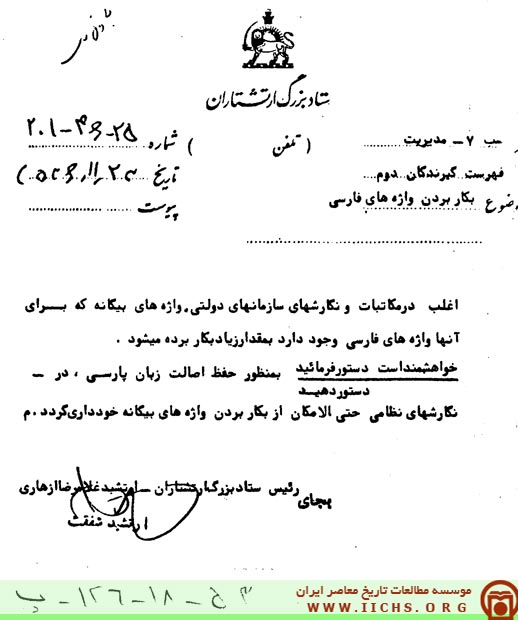 ستاد بزرگ ارتشتاران
شماره ۲۵-۴۶-۲۰۱
تاریخ
پیوست
سب ۷- مدیریت ( تلفن )
فهرست گیرندگان دوم
ضوع بکار بردن واژه های فارسی
اغلب درمکاتبات و نگارشهای سازمانهای دولتی، واژه های بیگانه که بـــرای
آنها واژه های فارسی وجود دارد بمقدارزیادبکار برده میشود .
خواهشمنداست دستورفرمائید بمنظور حفظ اصالت زبان پارســی ، در -
دستوردهیــد
نگارشهای نظامی حتی الامکان از بکار بردن واژه های بیگانه خودداری گردد . م
رئیس ستادبزرگ ارتشتاران - ارتشبدغلامرضاازهاری
بجای
ارتشبد شفقت
۱۲۶-۱۸-
موسسه مطالعات تاریخ معاصر ایران
WWW.IICHS.ORG